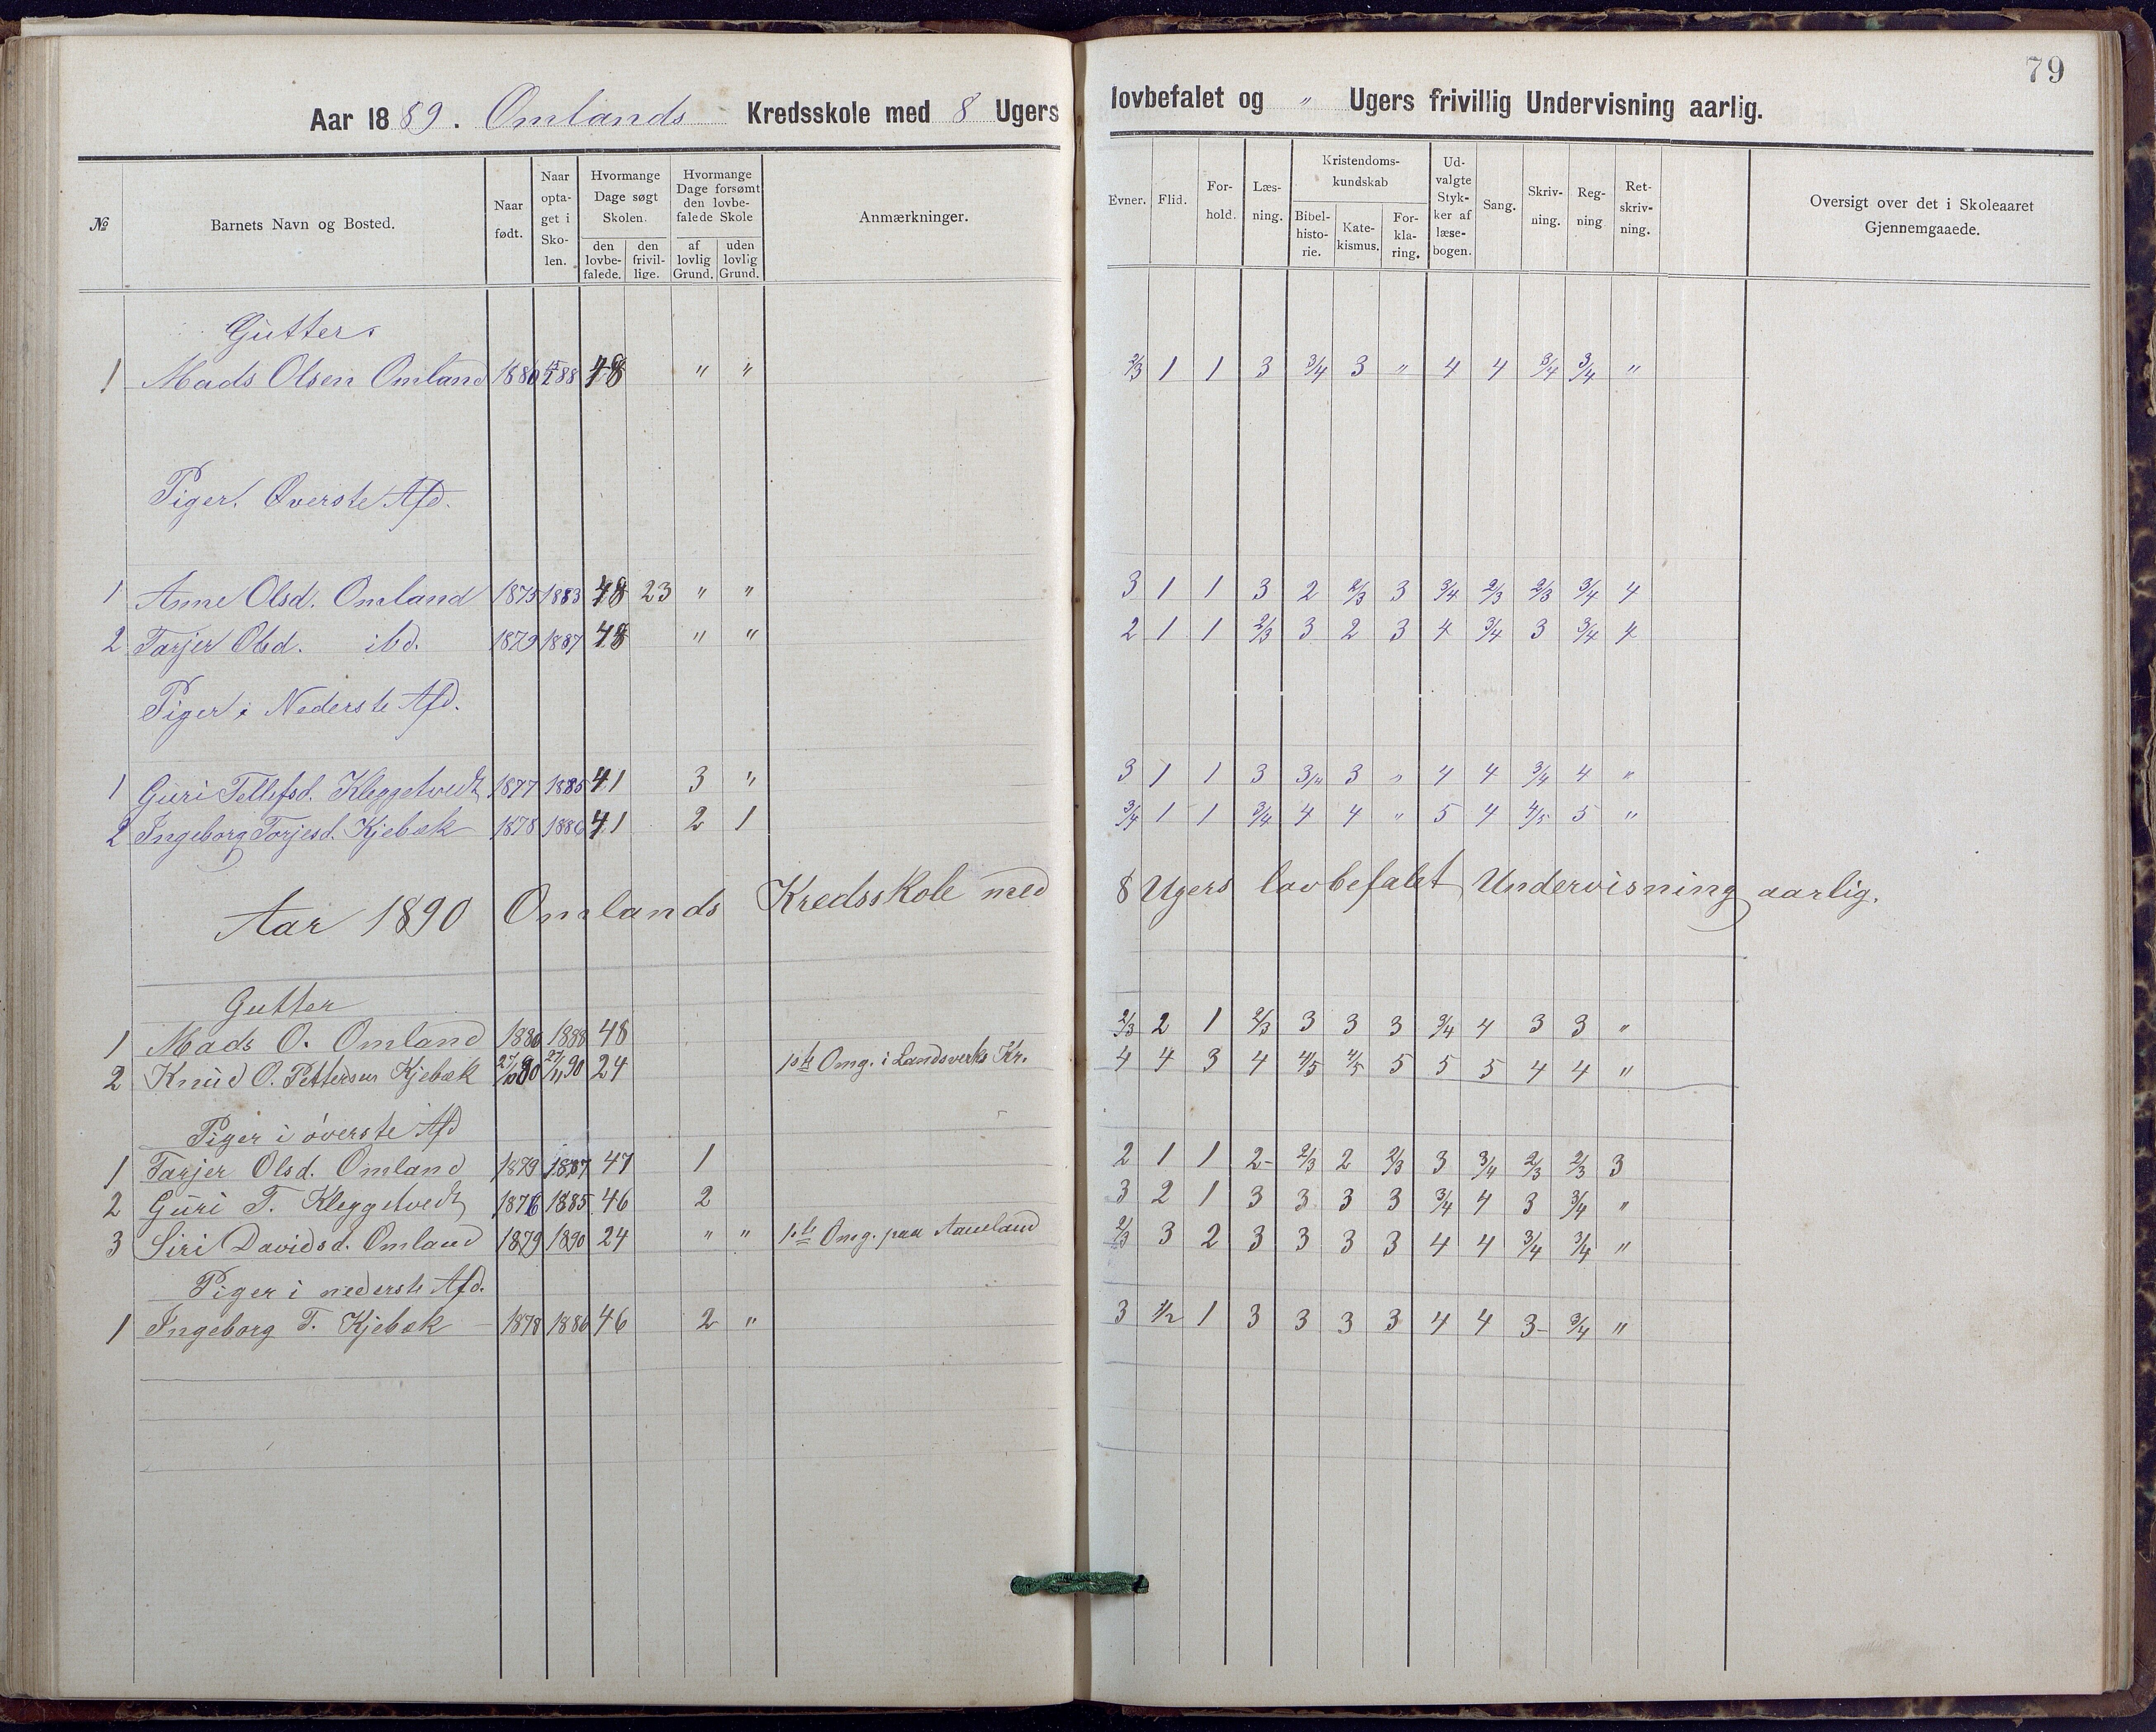 79
Aar 1889. Omlands Kredsskole med 8 Ugers lovbefalet og " Ugers frivillig Undervisning aarlig.
№ Barnets Navn og Bosted. Naar født. Naar optaget i Skolen. Hvormange Dage søgt Skolen. den lovbefalede. den frivillige. Hvormange Dage forsømt den lovbefalede Skole af lovlig Grund. uden lovlig Grund. Anmærkninger. Evner. Flid. Forhold. Læsning. Kristendomskundskab Bibelhistorie. Katekismus. Forklaring. Udvalgte Stykker af læsebogen. Sang. Skrivning. Regning Retskrivning. Oversigt over det i Skoleaaret Gjennemgaaede.
Gutter
1 Mads Olsen Omland 1880 88 48 " " 2/3 1 1 3 3/4 3 " 4 4 3/4 3/4 "
Piger. Øverste Afd.
1 Anne Olsd. Omland 1875 1883 48 23 " " 3 1 1 3 2 2/3 3 3/4 2/3 2/3 3/4 4
2 Tarjer Olsd. ibd. 1879 1887 48 " " 2 1 1 2/3 3 2 3 4 3/4 3 3/4 4
Piger i Nederste Afd.
1 Guri Tellefsd. Kleggetvedt 1877 1885 41 3 " 3 1 1 3 3/4 3 " 4 4 3/4 4 "
2 Ingeborg Torjesd. Kjebæk 1878 1886 41 2 1 3/4 1 1 3/4 4 4 " 5 4 4/5 5 "
Aar 1890 Omlands Kredsskole med 8 Ugers lovbefalet Undervisning aarlig.
Gutter
1 Mads O. Omland 1880 1888 48 2/3 2 1 2/3 3 3 3 3/4 4 3 3 "
2 Knud O. Pettersen Kjebæk 27/10 80 27/11 90 24 1ste Omg. i Landsverks Kr. 4 4 3 4 4/5 4/5 5 5 5 4 4 "
Piger i øverste Afd
1 Tarjer Olsd. Omland 1879 1887 47 1 2 1 1 2- 2/3 2 2/3 3 3/4 2/3 2/3 3
2 Guri T. Kleggetvedt 1876 1885 46 2 3 2 1 3 3 3 3 3/4 4 3 3/4 "
3 Siri Davidsd. Omland 1879 1890 24 " " 1ste Omg. paa Aameland 2/3 3 2 3 3 3 3 4 4 3/4 3/4 "
Piger i nederste Afd.
1 Ingeborg T. Kjebæk 1878 1886 46 2 " 3 1/2 1 3 3 3 3 4 4 3- 3/4 "